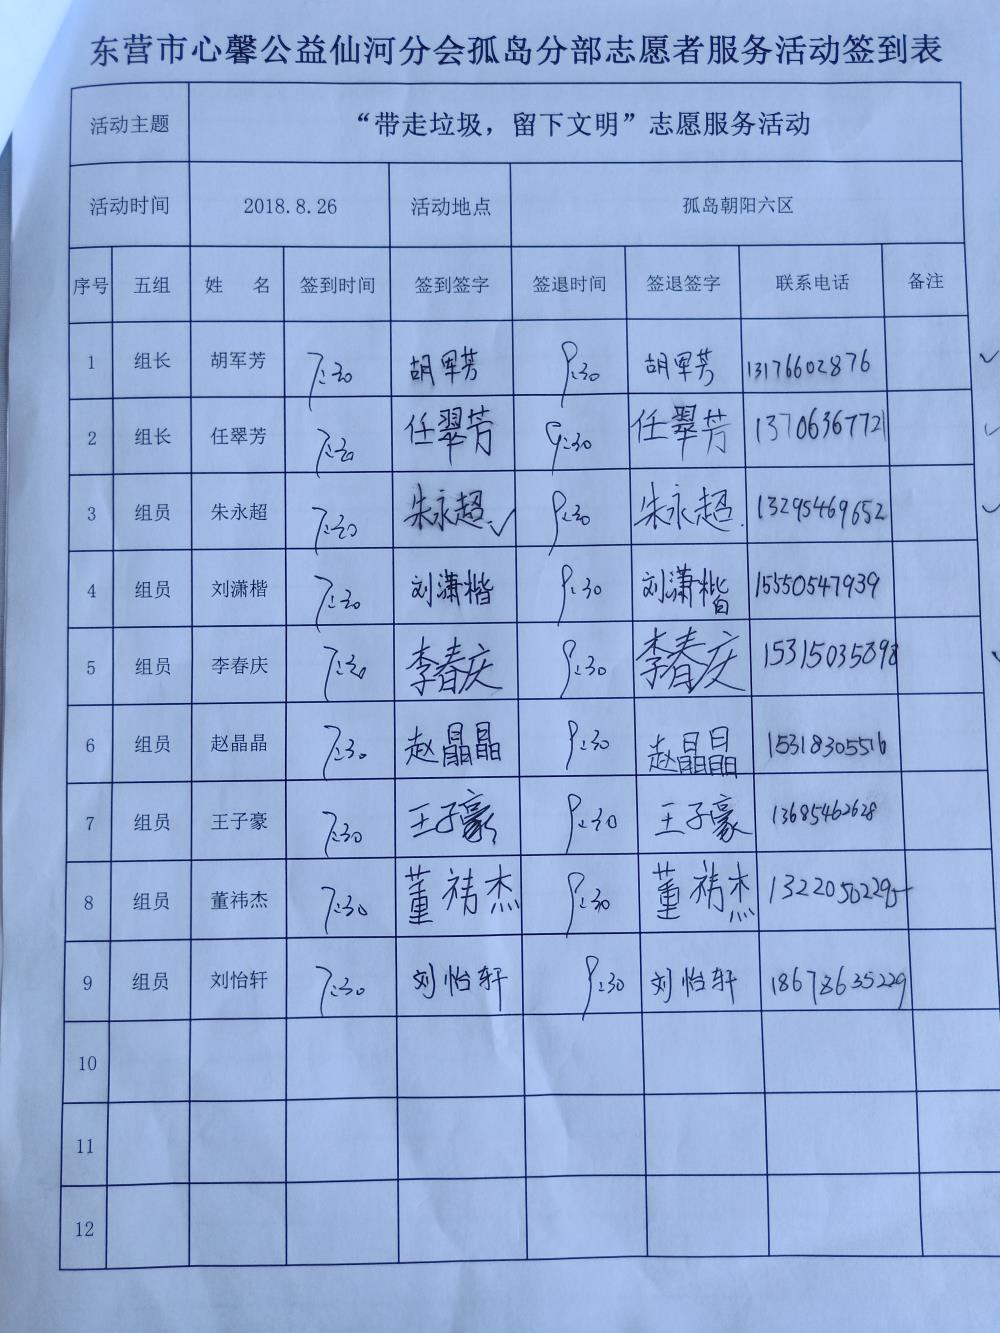 东营市心馨公益仙河分会孤岛分部志愿者服务活动签到表
活动主题 “带走垃圾，留下文明”志愿服务活动
活动时间 2018.8.26 活动地点 孤岛朝阳六区
序号 五组 姓 名 签到时间 签到签字 签退时间 签退签字 联系电话 备注
1 组长 胡军芳 7:30 胡军芳 9:30 胡军芳 13176602876
2 组长 任翠芳 7:30 任翠芳 9:30 任翠芳 13706367721
3 组员 朱永超 7:30 朱永超 9:30 朱永超 13295469652
4 组员 刘潇楷 7:30 刘潇楷 9:30 刘潇楷 15550547939
5 组员 李春庆 7:30 李春庆 9:30 李春庆 15315035898
6 组员 赵晶晶 7:30 赵晶晶 9:30 赵晶晶 15318305516
7 组员 王子豪 7:30 王子豪 9:30 王子豪 13685462628
8 组员 董祎杰 7:30 董祎杰 9:30 董祎杰 13220502295
9 组员 刘怡轩 7:30 刘怡轩 9:30 刘怡轩 18678635229
10
11
12